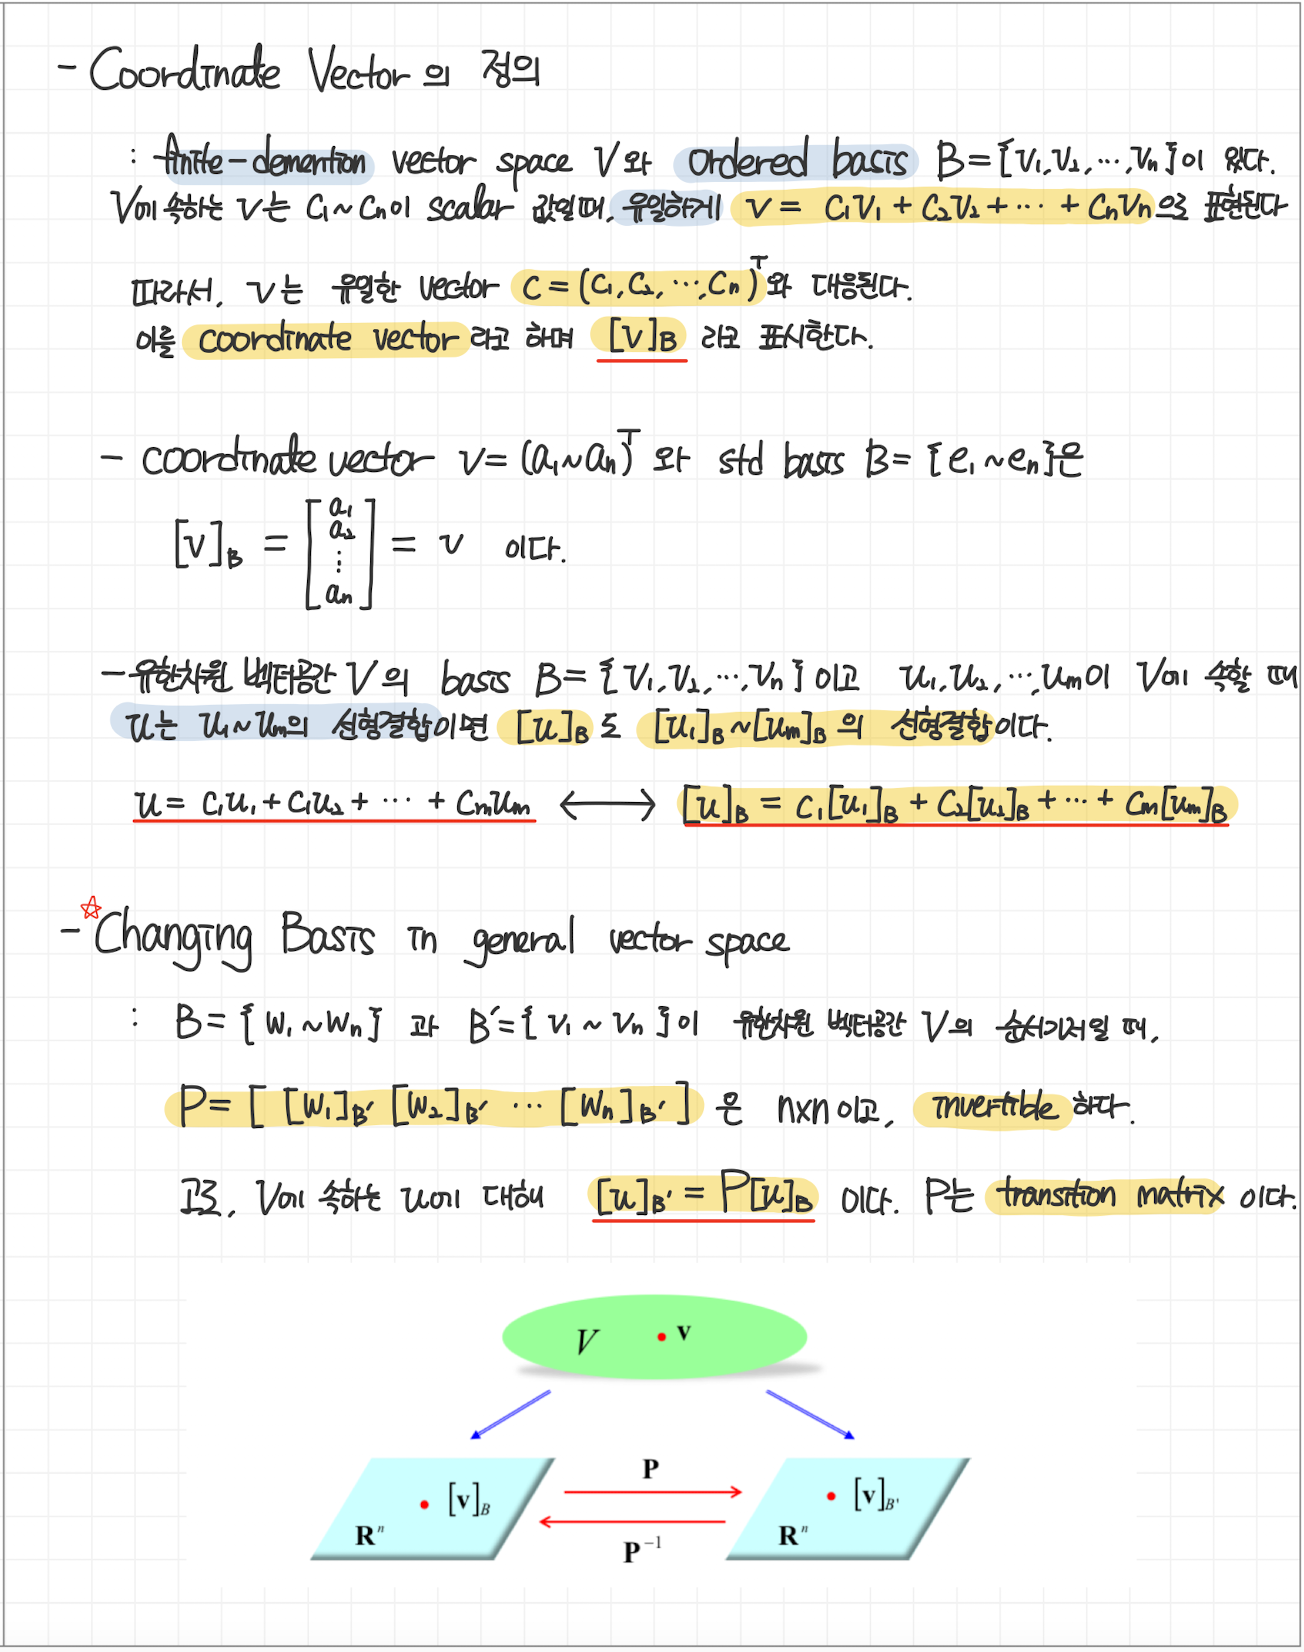 - Coordinate Vector의 정의
: finite-demention vector space V와 Ordered basis B = {v₁, v₂, ⋯, vₙ}이 있다.
V에 속하는 v는 c₁~cₙ이 scalar 값일때, 유일하게 v = c₁v₁ + c₂v₂ + ⋯ + cₙvₙ으로 표현된다
따라서, v는 유일한 vector c = (c₁, c₂, ⋯, cₙ)ᵀ와 대응된다.
이를 coordinate vector 라고 하며 [v]B 라고 표시한다.
- coordinate vector v = (a₁~aₙ)ᵀ 와 std basis B = {e₁~eₙ}은
[v]B = [a₁ a₂ ⋮ aₙ] = v 이다.
- 유한차원 벡터공간 V의 basis B = {v₁, v₂, ⋯, vₙ}이고 u₁, u₂, ⋯, uₘ이 V에 속할 때
u는 u₁~uₘ의 선형결합이면 [u]B 도 [u₁]B ~ [uₘ]B 의 선형결합이다.
u = c₁u₁ + c₁u₂ + ⋯ + cₘuₘ ⟷ [u]B = c₁[u₁]B + c₂[u₂]B + ⋯ + cₘ[uₘ]B
-☆Changing Basis in general vector space
: B = {w₁~wₙ} 과 B′ = {v₁~vₙ}이 유한차원 벡터공간 V의 순서기저일 때,
P = [ [w₁]B′ [w₂]B′ ⋯ [wₙ]B′ ] 은 n×n이고, invertible 하다.
고로, V에 속하는 u에 대해 [u]B′ = P[u]B 이다. P는 transition matrix 이다.
V v
P
[v]B [v]B'
Rⁿ Rⁿ
P⁻¹